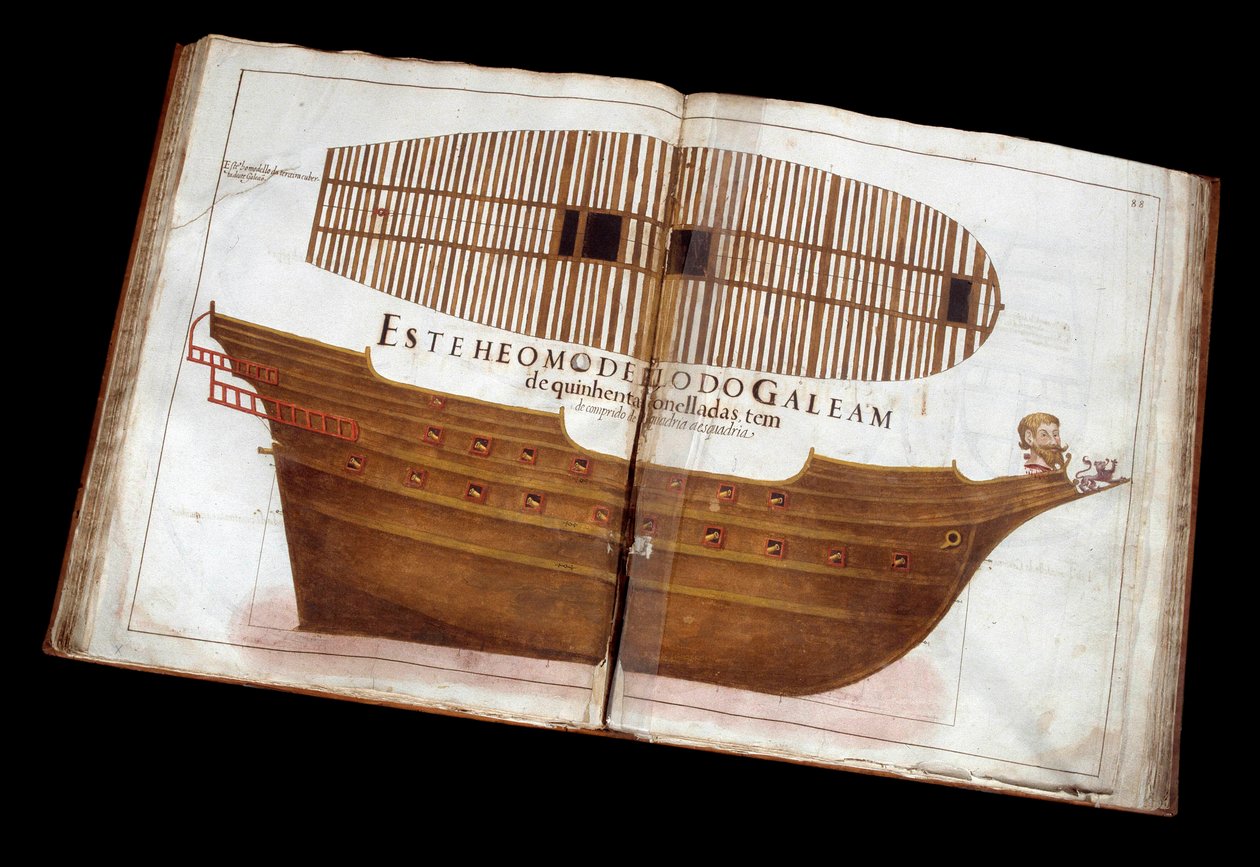 Este he o modello da terceira cuber-
ta deste Galeaõ
88
ESTE HE O MODELLO DO GALEAM
de quinhentas tonelladas, tem
de comprido de esquadria a esquadria